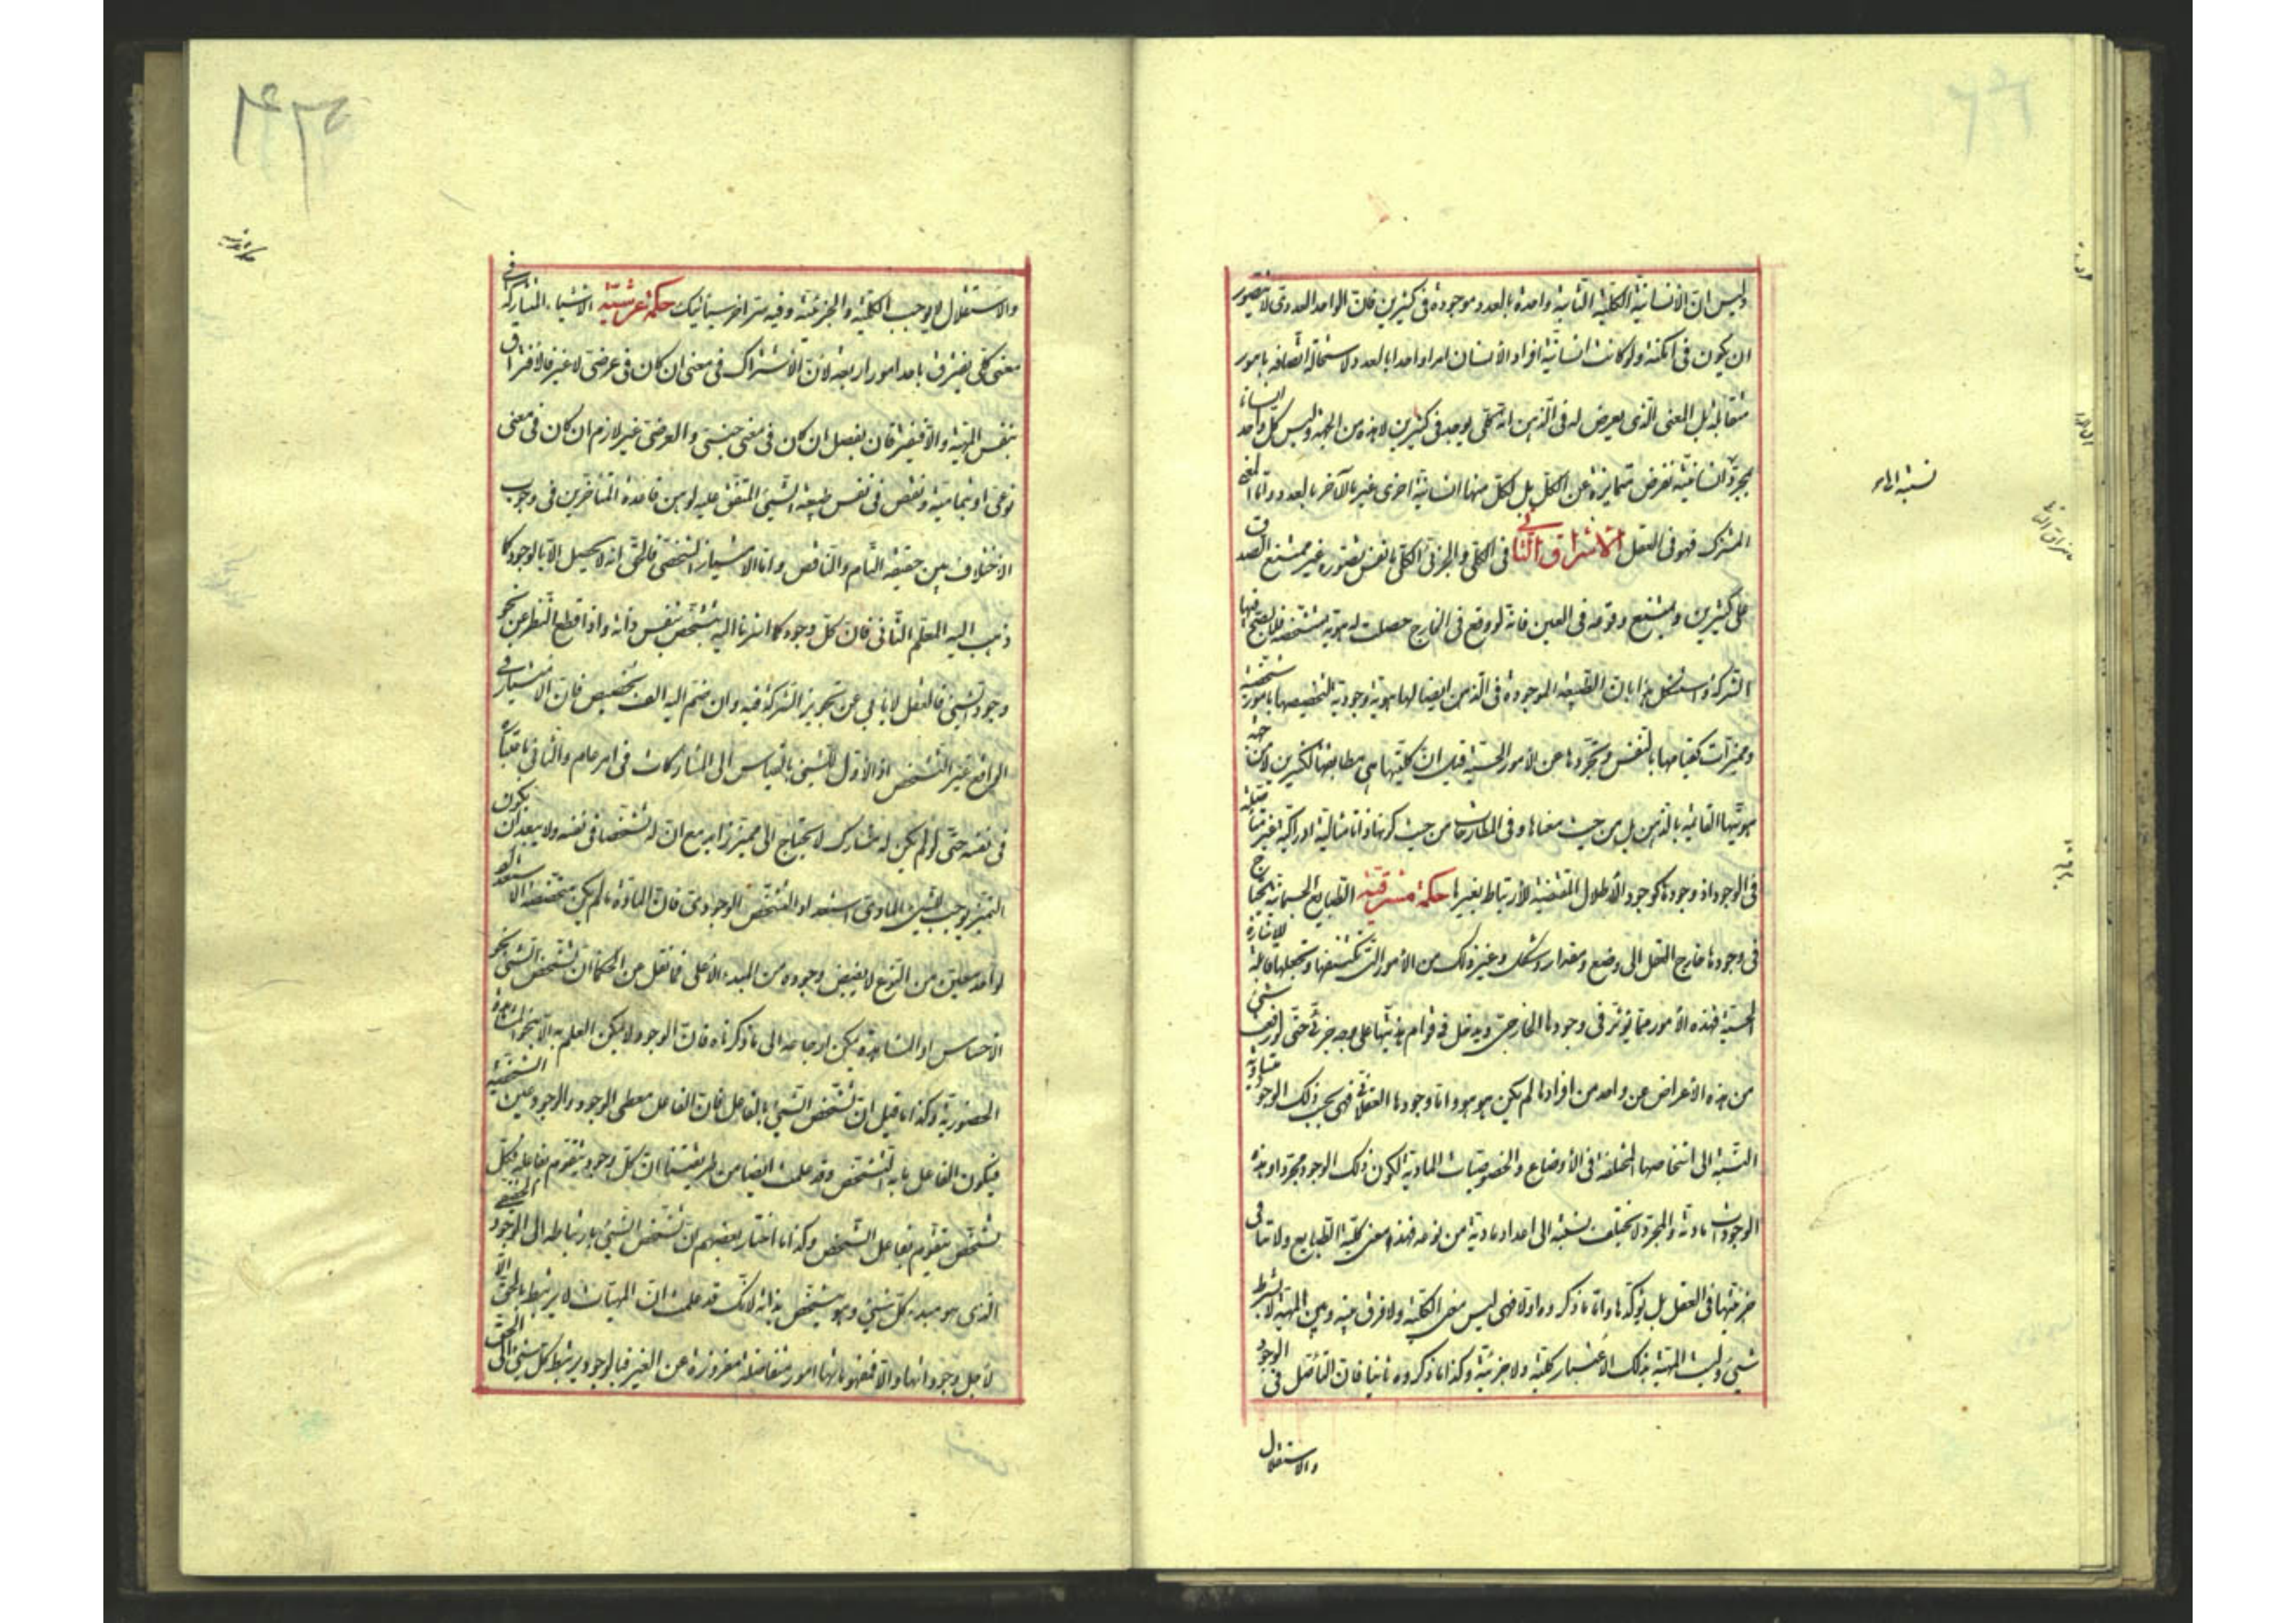 وليس ان الانسانية الكلية الثابتة واحدة بالعدد موجودة فى كثيرين فان الواحد العددى لا يتصور
ان يكون فى امكنة ولو كانت انسانية افراد الانسان امرا واحدا بالعدد لاستحالة اتصافه بامور
متقابلة بل المعنى الذى يعرض له فى الذهن انه كلى يوجد فى كثيرين لا بهذه من الجهة وليس كل واحد انسانا
بمجرد انسانية تفرض متمايزة عن الكل بل لكل منها انسانية اخرى غير ما للآخر بالعدد واما المعنى
المشترك فهو فى العقل الاشراق الثانى فى الكلى والجزئى الكلى ما نفس تصوره غير ممتنع الصدق
على كثيرين ويمتنع وقوعه فى العين فانه لو وقع فى الخارج حصلت له هوية متشخصة فلا يصح فيها
الشركة واستشكل هذا بان الطبيعة الموجودة فى الذهن ايضا لها هوية وجودية لتخصيصها بامور متشخصة
ومميزات كقيامها بالنفس وتجردها عن الامور الحسية قيل ان كليتها هى مطابقتها لكثيرين لا من جهة
هويتها القائمة بالذهن بل من حيث معناها وفى المطارحات من حيث كونها ذاتا مثالية ادراكية غير متأصلة
فى الوجود اذ وجودها كوجود الاظلال المقتضية للارتباط بغيرها حكمة مشرقية الطبايع الجسمانية تحتاج
فى وجودها خارج العقل الى وضع ومقدار وشكل وغير ذلك من الامور التى تكتنفها وتجعلها قابلة للاشارة
الحسية فهذه الامور مما يؤثر فى وجودها الخارجى ويدخل فى قوام هذيتها على وجه جزئى حتى لو رفع شئ
من هذه الاعراض عن واحد من افرادها لم يكن هو هو واما وجودها العقلانى فهى بحسب ذلك الوجود متساوية
النسبة الى اشخاصها المختلفة فى الاوضاع والخصوصيات المادية لكون ذلك الوجود مجردا وهذه
الوجودات مادية والمجرد لا يختلف نسبته الى اعداد مادية من نوعه فهذا معنى كلية الطبايع ولا تنافى
جزئيتها فى العقل بل يؤكدها واما ما ذكروه اولا فهى ليس معنى الكلية ولا فرق بينه وبين المهية لا بشرط
شئ وليست المهية بذلك الاعتبار كلية ولا جزئية وكذا ما ذكروه ثانيا فان التأصل فى الوجود
والاستقلال
والاستقلال لا يوجب الكلية والجزئية وفيه سر اخر سيأتيك حكمة عرشية الاشياء المشاركة فى
معنى كلى يفترق باحد امور اربعة لان الاشتراك فى معنى ان كان فى عرضى لا غير فالافتراق
بنفس المهية والا فيفترقان بفصل ان كان فى معنى جنسى والعرضى غير لازم ان كان فى معنى
نوعى او بتمامية ونقص فى نفس طبيعة الشئ المتفق عليه لوهن قاعدة المتأخرين فى وجوب
الاختلاف بين حقيقة التام والناقص واما الامتياز الشخصى فالحق انه لا يحصل الا بالوجود كما
ذهب اليه المعلم الثانى فان كل وجود كما اشرنا اليه متشخص بنفس ذاته واذا قطع النظر عن نحو
وجود الشئ فالعقل لا يأبى عن تجويز الشركة فيه وان ضم اليه الف تخصيص فان الامتياز فى
الواقع غير التشخص اذ الاول للشئ بالقياس الى المشاركات فى امر عام والثانى باعتباره
فى نفسه حتى لو لم يكن له مشارك لا يحتاج الى مميز زايد مع ان له تشخصا فى نفسه ولا يبعد ان يكون
التميز يوجب للشئ المادى استعداد التشخص الوجودى فان المادة ما لم يكن متخصصة الاستعداد
لواحد معين من النوع لا يفيض وجوده من المبدء الاعلى فما نقل من الحكما ان تشخص الشئ بنحو
الاحساس او المشاهدة يمكن ارجاعه الى ما ذكرناه فان الوجود لا يمكن العلم به الا بنحو المشاهدة
الحضورية وكذا ما قيل ان تشخص الشئ بالفاعل فان الفاعل معطى الوجود والوجود عين الشخصية
فيكون الفاعل ما به التشخص وقد علمت ايضا من طريقتنا ان كل وجود يتقوم بفاعله فكل
تشخص يتقوم بفاعل التشخص وكذا ما اختار بعضهم ان تشخص الشئ بارتباطه الى الوجود الحقيقى
الذى هو مبدء كل شئ وهو متشخص بذاته لانك قد علمت ان المهيات لا يرتبط بالحق الا
لاجل وجوداتها والا فنفوسها امور متفاضلة مفروزة عن الغير فبالوجود يرتبط كل شئ الى الحق